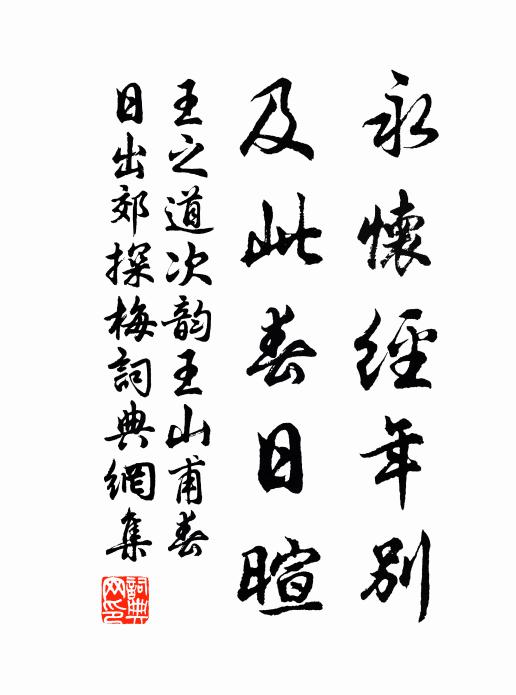 永懷經年別
及此春日暄
王之道次韵王山甫春
日出郊探梅詞典網集
詞典
网印